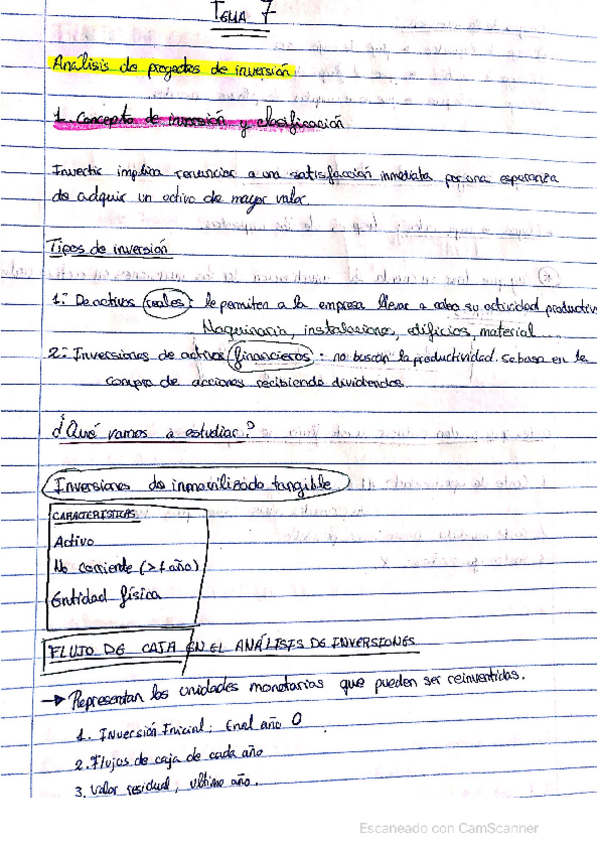 TEMA 7
Análisis de proyectos de inversión
1. Concepto de inversión y clasificación
Invertir implica renunciar a una satisfacción inmediata por una esperanza
de adquir un activo de mayor valor.
Tipos de inversión
1.- De activos reales: le permiten a la empresa llevar a cabo su actividad productiva
Maquinaria, instalaciones, edificios, material
2.- Inversiones de activos financieros: no buscan la productividad. Se basa en la
compra de acciones recibiendo dividendos.
¿Qué vamos a estudiar?
Inversiones de inmovilizado tangible
CARACTERÍSTICAS
Activo
No corriente (>1 año)
Entidad física
FLUJO DE CAJA EN EL ANÁLISIS DE INVERSIONES
→ Representan las unidades monetarias que pueden ser reinvertidas.
1. Inversión Inicial: En el año 0
2. Flujos de caja de cada año
3. Valor residual, último año.
Escaneado con CamScanner